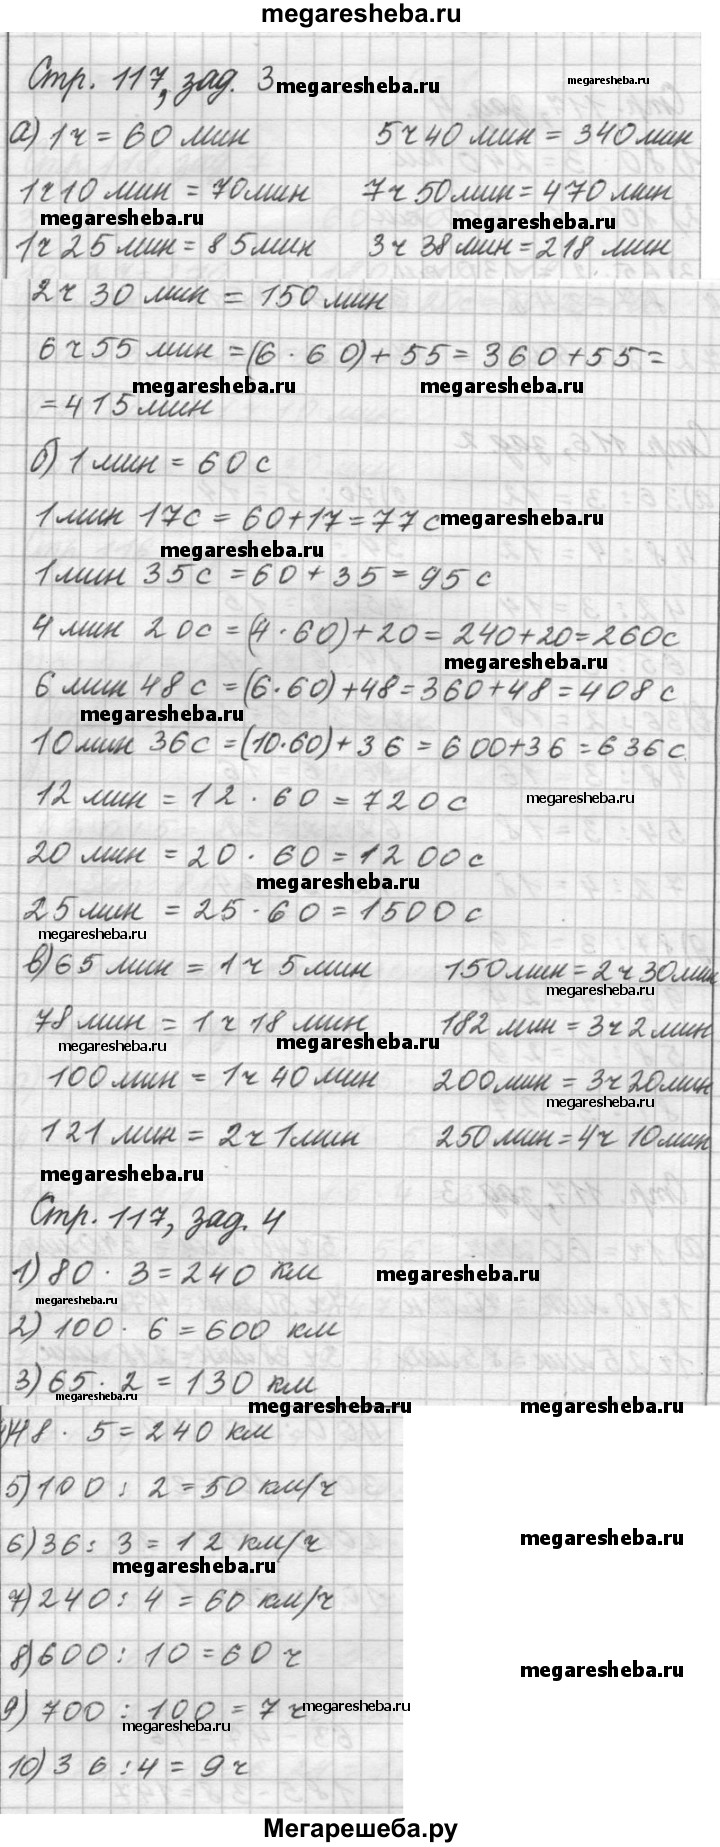 megaresheba.ru
Стр. 117, зад. 3 megaresheba.ru megaresheba.ru
а) 1ч = 60 мин 5ч 40 мин = 340 мин
1ч 10 мин = 70 мин 7ч 50 мин = 470 мин
megaresheba.ru megaresheba.ru
1ч 25 мин = 85 мин 3ч 38 мин = 218 мин
2ч 30 мин = 150 мин
6ч 55 мин = (6 · 60) + 55 = 360 + 55 =
megaresheba.ru megaresheba.ru
= 415 мин
б) 1 мин = 60 с
1 мин 17с = 60 + 17 = 77 с megaresheba.ru
megaresheba.ru
1 мин 35 с = 60 + 35 = 95 с
4 мин 20с = (4 · 60) + 20 = 240 + 20 = 260с
megaresheba.ru
6 мин 48 с = (6 · 60) + 48 = 360 + 48 = 408 с
megaresheba.ru
10 мин 36с = (10 · 60) + 36 = 600 + 36 = 636 с
12 мин = 12 · 60 = 720 с megaresheba.ru
20 мин = 20 · 60 = 1200 с
megaresheba.ru
25 мин = 25 · 60 = 1500 с
megaresheba.ru
в) 65 мин = 1ч 5 мин 150 мин = 2ч 30 мин
megaresheba.ru
78 мин = 1ч 18 мин 182 мин = 3ч 2 мин
megaresheba.ru megaresheba.ru
100 мин = 1ч 40 мин 200 мин = 3ч 20 мин
megaresheba.ru
121 мин = 2ч 1 мин 250 мин = 4ч 10 мин
megaresheba.ru
Стр. 117, зад. 4
1) 80 · 3 = 240 км megaresheba.ru
megaresheba.ru
2) 100 · 6 = 600 км
3) 65 · 2 = 130 км
megaresheba.ru megaresheba.ru megaresheba.ru
4) 48 · 5 = 240 км
5) 100 : 2 = 50 км/ч
6) 36 : 3 = 12 км/ч megaresheba.ru
megaresheba.ru
7) 240 : 4 = 60 км/ч
8) 600 : 10 = 60 ч
megaresheba.ru
9) 700 : 100 = 7 ч megaresheba.ru
megaresheba.ru
10) 36 : 4 = 9 ч
Мегарешеба.ру